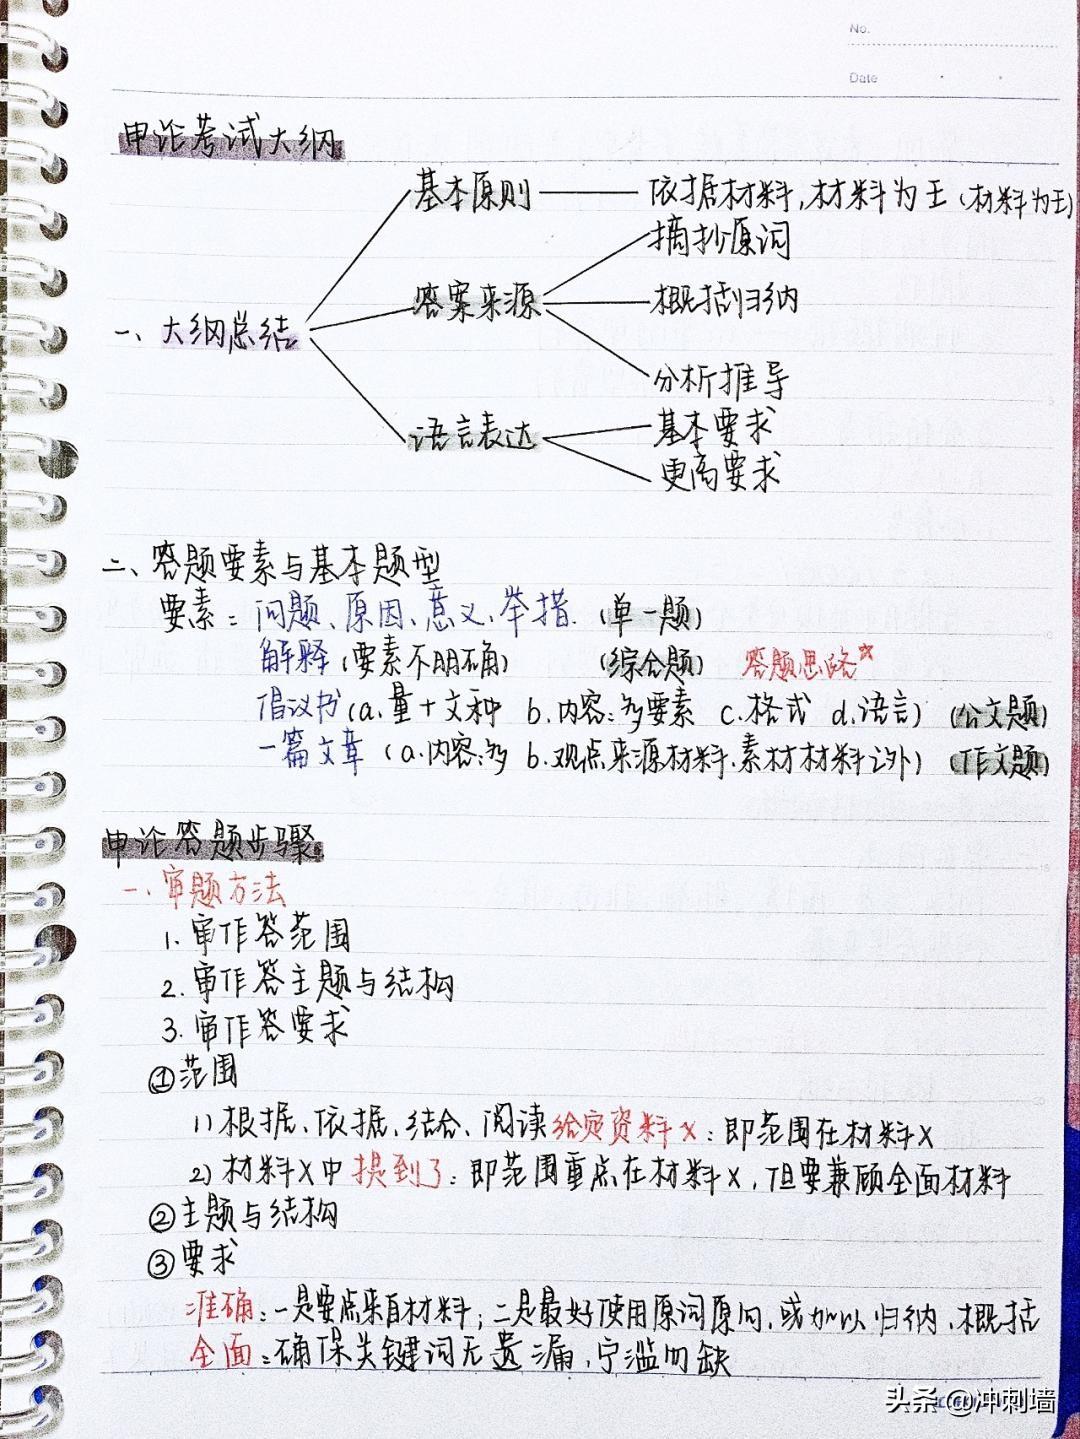 No.
Date
申论考试大纲
基本原则 依据材料,材料为王(材料为王)
摘抄原词
答案来源 概括归纳
一、大纲总结
分析推导
语言表达 基本要求
更高要求
二、答题要素与基本题型
要素:问题、原因、意义、举措. (单一题)
解释(要素不明确) (综合题) 答题思路☆
倡议书(a.量+文种 b.内容:多要素 c.格式 d.语言) (公文题)
一篇文章(a.内容:多 b.观点来源材料.素材材料之外) (作文题)
申论答题步骤
一、审题方法
1.审作答范围
2.审作答主题与结构
3.审作答要求
①范围
1)根据、依据、结合、阅读给定资料X:即范围在材料X
2)材料X中提到了:即范围重点在材料X,但要兼顾全面材料
②主题与结构
③要求
准确:一是要点来自材料;二是最好使用原词原句,或加以归纳、概括
全面:确保关键词无遗漏,宁滥勿缺
头条@冲刺墙